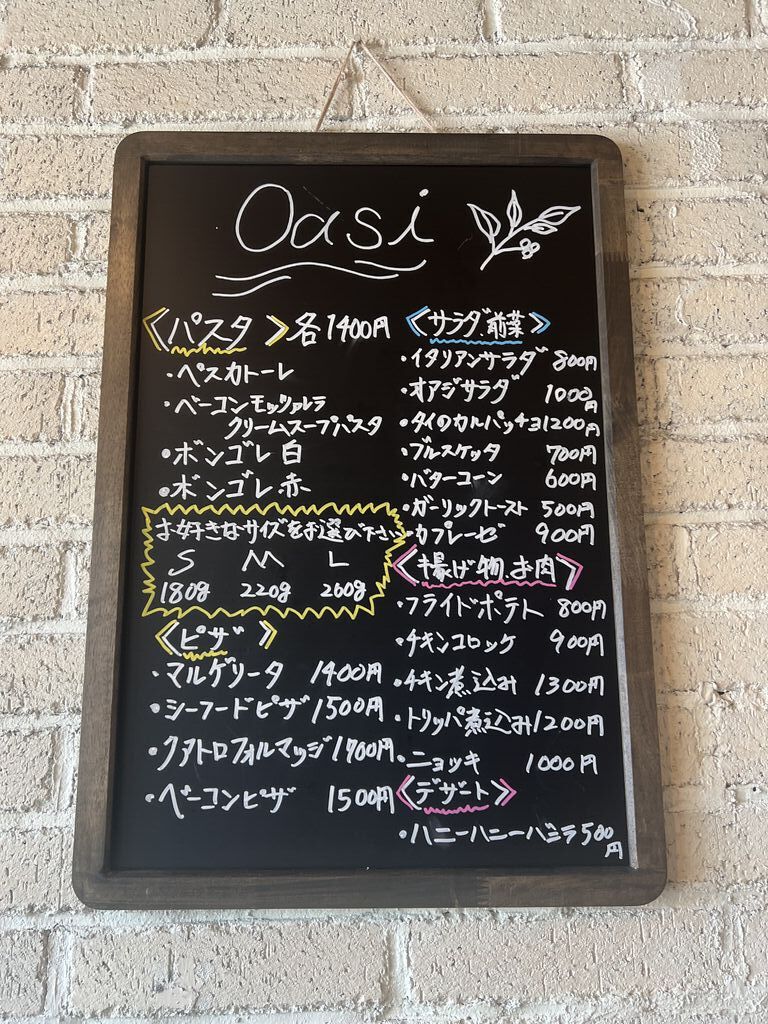 Oasi
〈パスタ〉各1400円
・ペスカトーレ
・ベーコンモッツァレラ
クリームスープパスタ
・ボンゴレ白
・ボンゴレ赤
お好きなサイズをお選び下さい
S M L
180g 220g 260g
〈ピザ〉
・マルゲリータ 1400円
・シーフードピザ 1500円
・クアトロフォルマッジ 1700円
・ベーコンピザ 1500円
〈サラダ、前菜〉
・イタリアンサラダ 800円
・オアジサラダ 1000円
・タイのカルパッチョ1200円
・ブルスケッタ 700円
・バターコーン 600円
・ガーリックトースト 500円
・カプレーゼ 900円
〈揚げ物、お肉〉
・フライドポテト 800円
・チキンコロッケ 900円
・チキン煮込み 1300円
・トリッパ煮込み1200円
・ニョッキ 1000円
〈デザート〉
・ハニーハニーハニラ 500円